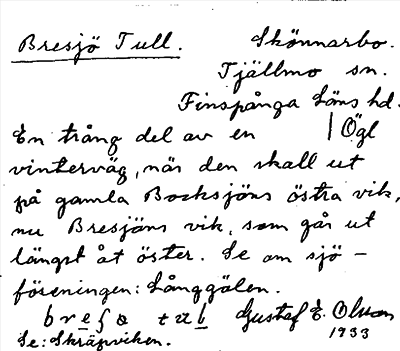 Bresjö Tull. Skönnarbo.
Tjällmo sn.
Finspånga Läns hd.
En trång del av en | Ögl
vinterväg, när den skall ut
på gamla Bocksjöns östra vik,
nu Bresjöns vik, som går ut
längst åt öster. Se om sjö-
föreningen: Långgölen.
Gustaf E. Olsson
Se: Skräpviken. 1933